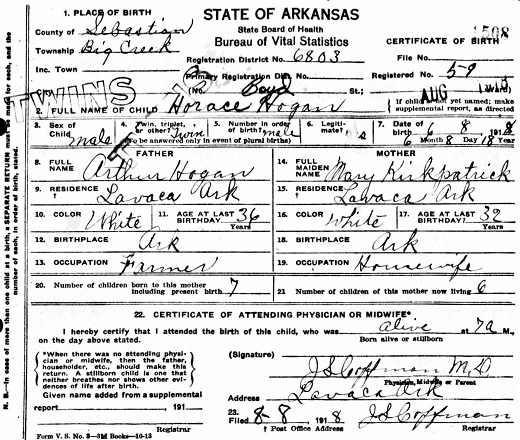 1. PLACE OF BIRTH
STATE OF ARKANSAS
1508
County of Sebastian
State Board of Health
CERTIFICATE OF BIRTH
Township Big Creek
Bureau of Vital Statistics
Inc. Town
Registration District No. 6803
File No.
Primary Registration Dist. No.
Registered No. 59
(No. Boyd St.;
AUG 1918
TWINS
2. FULL NAME OF CHILD Horace Hogan
If child is not yet named; make supplemental report, as directed
3. Sex of Child male
4. Twin, triplet, or other? Twin
5. Number in order of birth? male
6. Legitimate?
7. Date of birth 6 8 1918
(To be answered only in event of plural births)
6 Month 8 Day 18 Year
FATHER
MOTHER
8. FULL NAME Arthur Hogan
14. FULL MAIDEN NAME Mary Kirkpatrick
9. RESIDENCE † Lavaca Ark
15. RESIDENCE † Lavaca Ark
10. COLOR White
11. AGE AT LAST BIRTHDAY 36 Years
16. COLOR White
17. AGE AT LAST BIRTHDAY? 32 Years
12. BIRTHPLACE Ark
18. BIRTHPLACE Ark
13. OCCUPATION Farmer
19. OCCUPATION Housewife
20. Number of children born to this mother including present birth 7
21 Number of children of this mother now living 6
22. CERTIFICATE OF ATTENDING PHYSICIAN OR MIDWIFE*
I hereby certify that I attended the birth of this child, who was alive at 7 a M.,
on the day above stated.
Born alive or stillborn
*When there was no attending physician or midwife, then the father, householder, etc., should make this return. A stillborn child is one that neither breathes nor shows other evidences of life after birth.
(Signature) J S Coffman M.D.
Physician, Midwife or Parent
Given name added from a supplemental
Address Lavaca Ark
report , 191
23. Filed 8-8 1918 J S Coffman
Registrar
† Post Office Address
Registrar
Form V. S. No. 3—3M Books—10-13
N. B.—In case of more than one child at a birth, a SEPARATE RETURN must be made for each, and the number of each, in order of birth, stated.